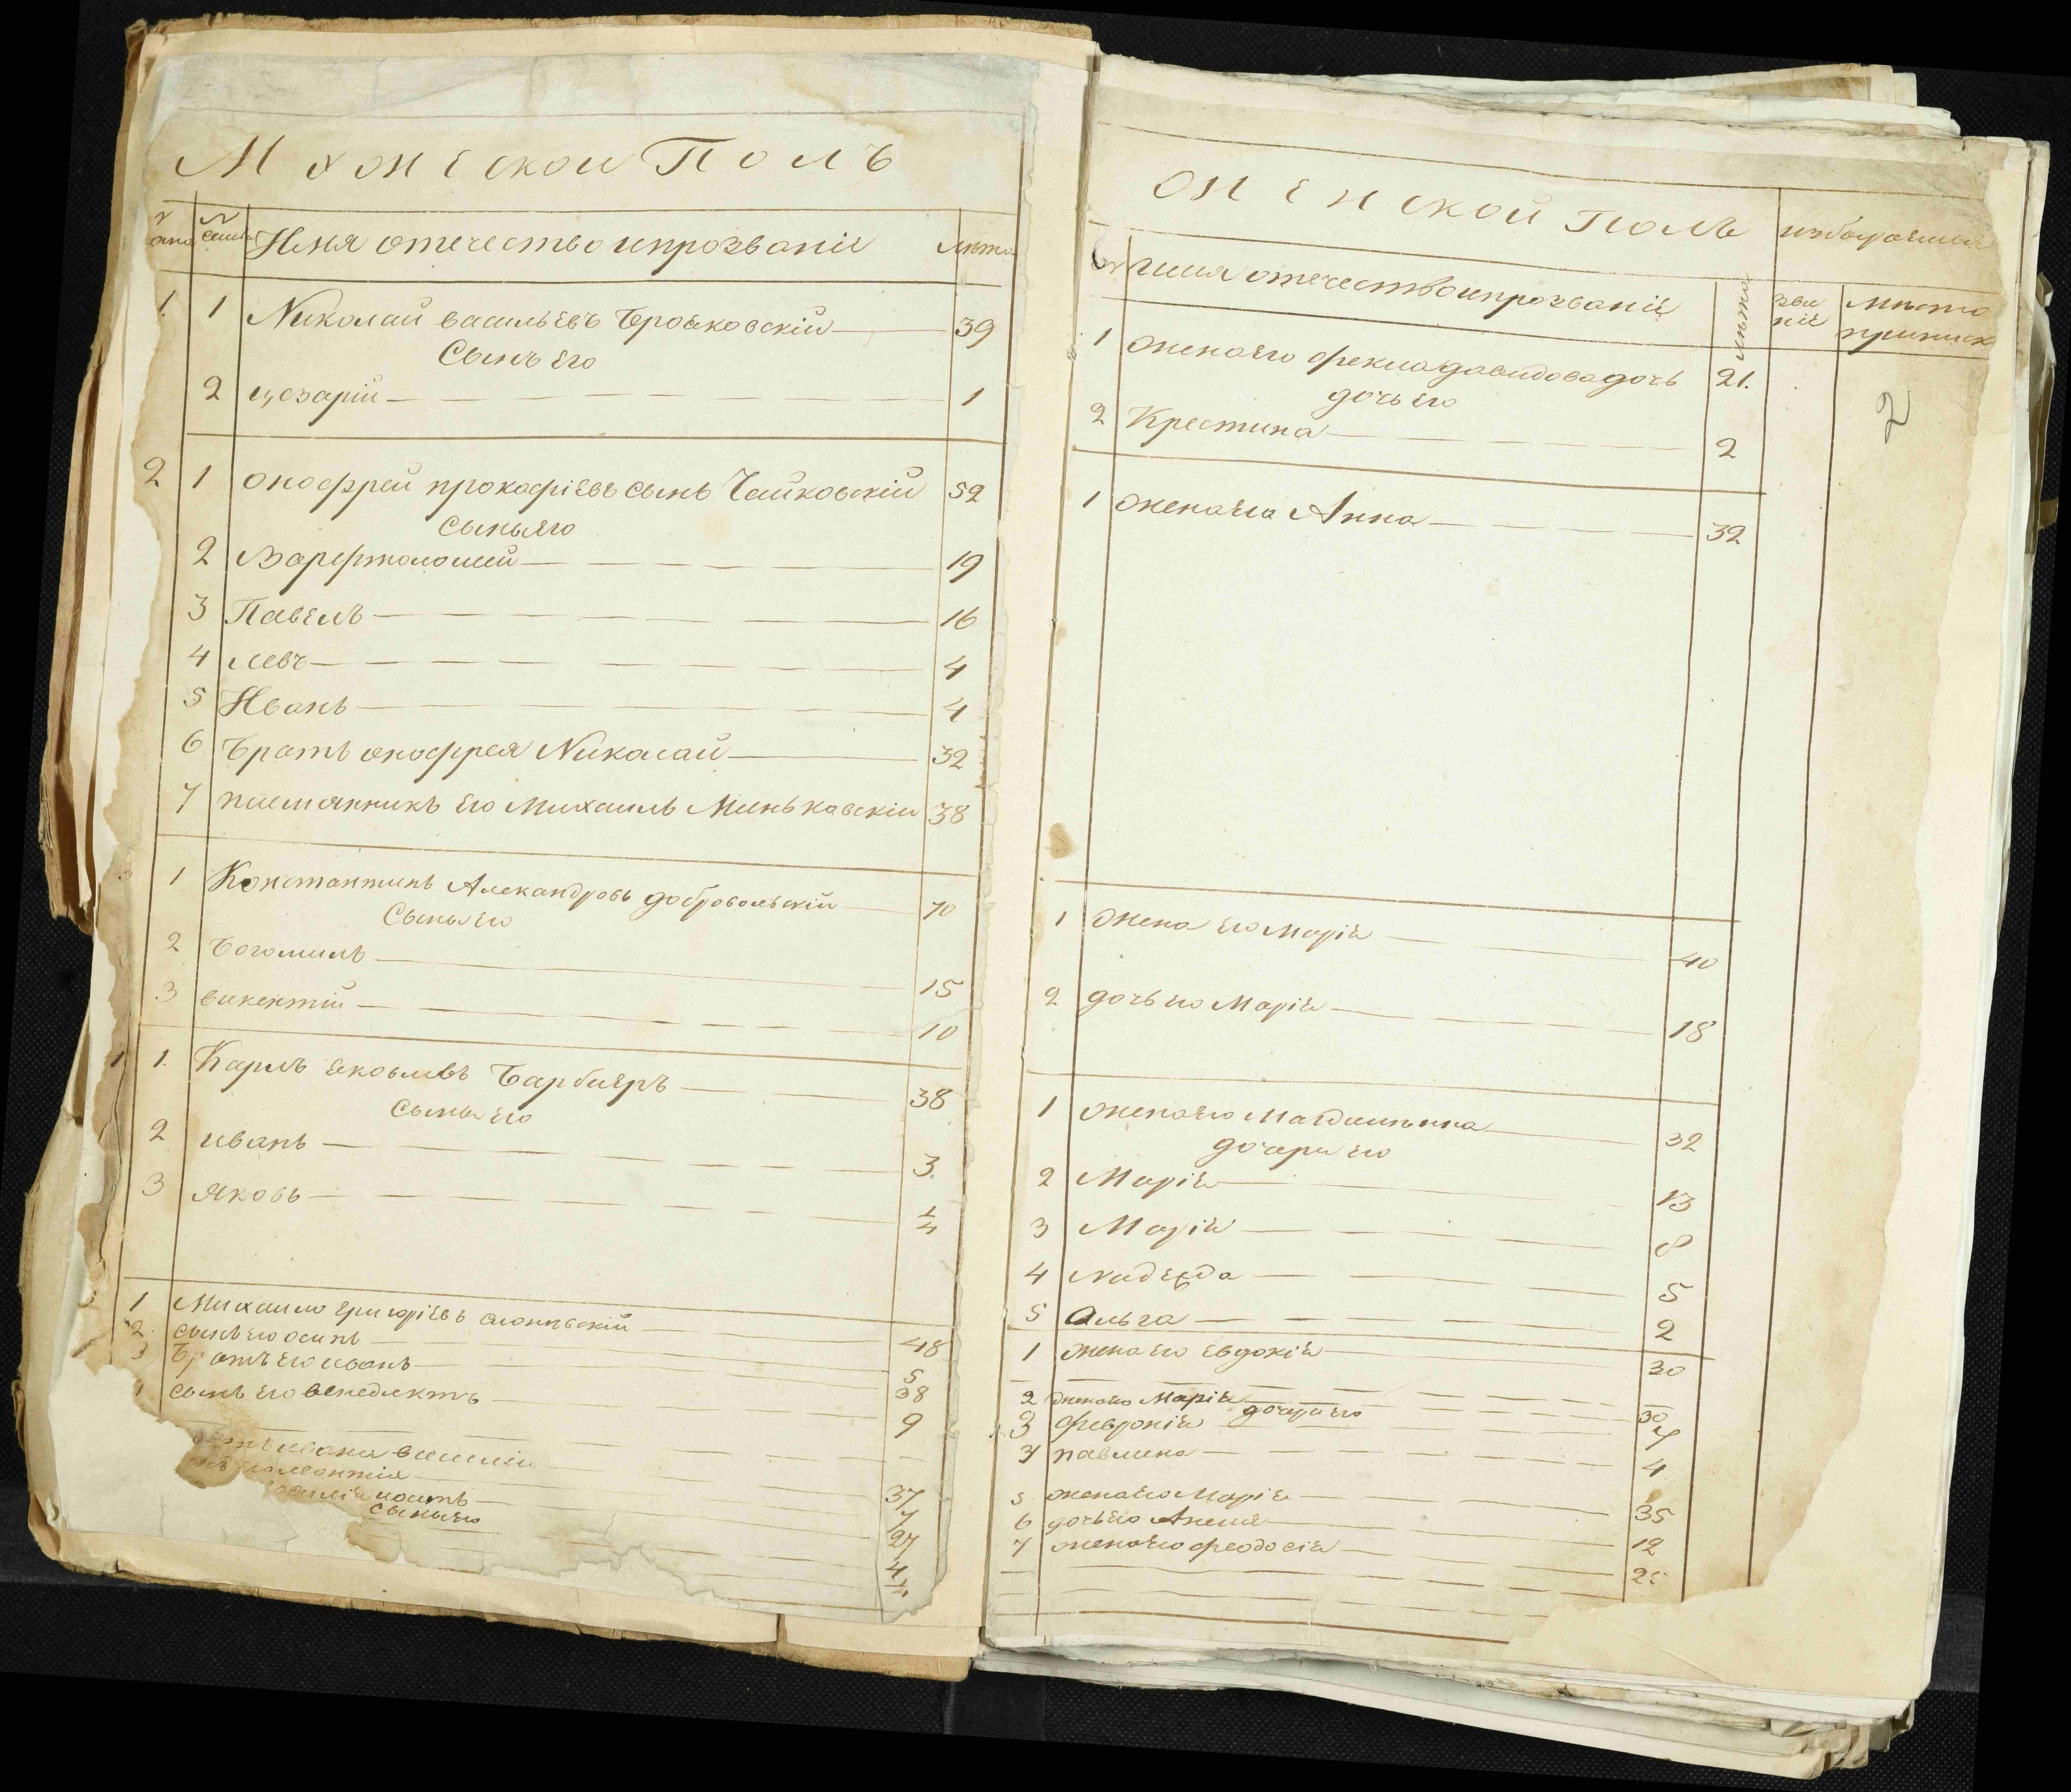 Мужескои Полъ
№ №
семьи Имя отечество ипрозваніе лѣта
1. 1 Николай васильевъ Броековскій 39
Сынъ его
2 цезарій 1
2 1 онофрей прокофіевъ сынъ Чайковскій 52
Сыныего
2 Варфтоломей 19
3 Павелъ 16
4 левъ 4
5 Иванъ 4
6 Братъ онофрея Николай 32
7 племянникъ его Михаилъ Миньковскіи 38
1 Константинъ Александровъ добровольскій 70
Сыны его
2 Богомилъ 15
3 викентій 10
1 1. Карлъ ековлевъ Барбиеръ 38
Сыны его
2 иванъ 3.
3 яковъ 1/4
1 Михаило григоріевъ 48
2. сынъ его осипъ 5
3 Братъ его иванъ 38
1 сынъ его венедиктъ 9
ивана василій 37
7
27
сыны его
4
женской полъ
имя отечествоипрозваніе лѣта зва
ніе мѣсто
приписк
1 женаего фекла давидовадочь 21.
дочь его
2 Крестина 2
2
1 женаего Анна 32
1 жена его Маріе 40
2 дочь его Маріе 18
1 женаего Магдалынна 32
дочери его
2 Маріе 13
3 Маріе 8
4 Надежда 5
5 Альга 2
1 жена его евдокіе 30
2 женаего Маріе 30
дочери его
3 февроніе 7
3 павлина 4
5 женаего Маріе 35
6 дочь его Анеля 12
7 женаего феодосіе